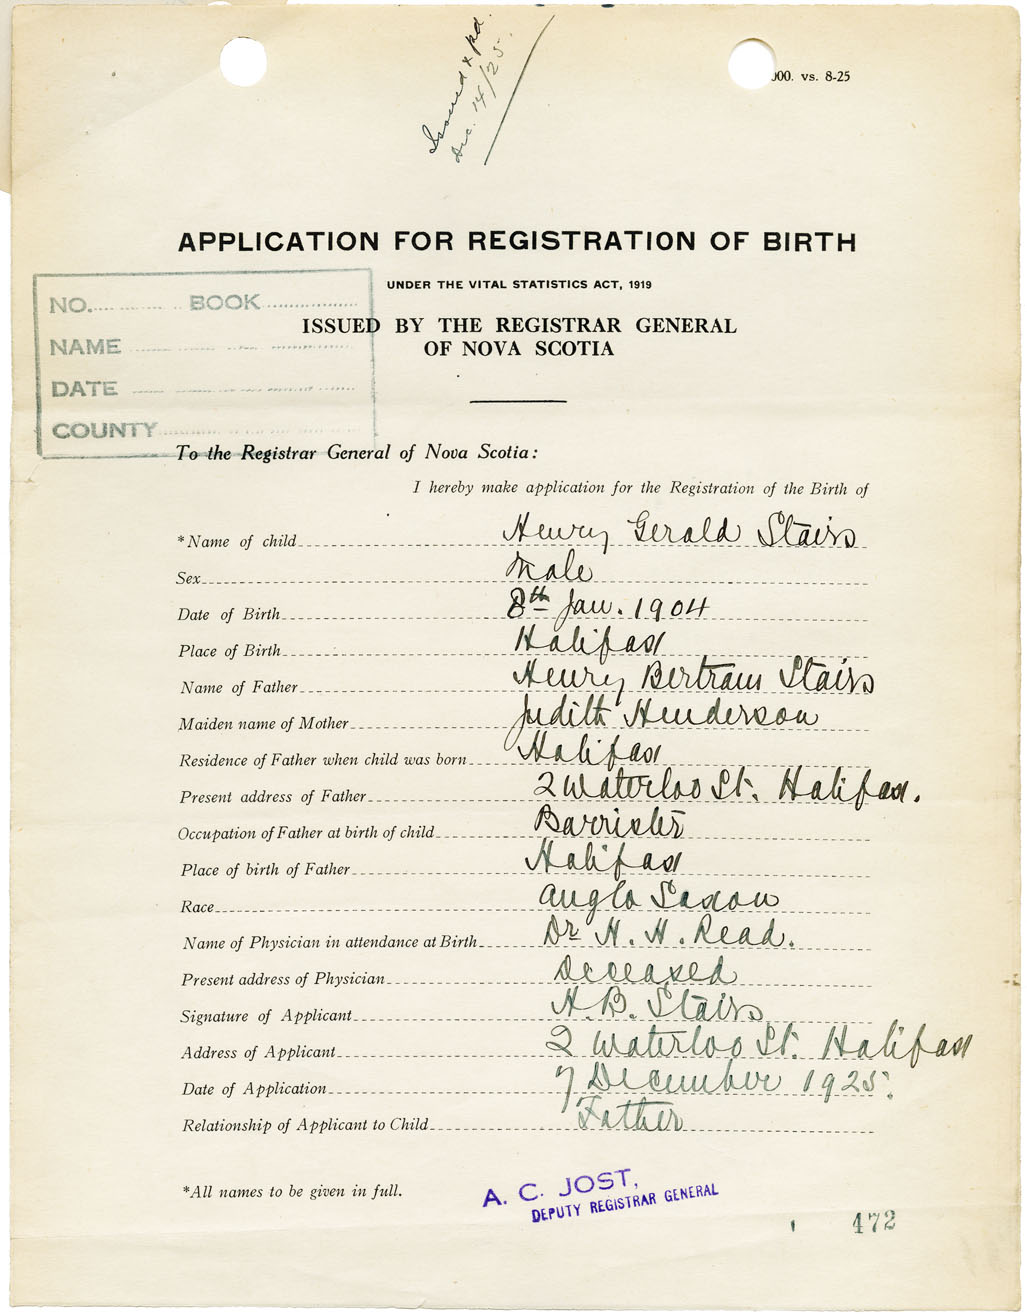 Issued & pd.
Dec. 14/25.
000. vs. 8-25
APPLICATION FOR REGISTRATION OF BIRTH
UNDER THE VITAL STATISTICS ACT, 1919
ISSUED BY THE REGISTRAR GENERAL
OF NOVA SCOTIA
NO. BOOK
NAME
DATE
COUNTY
To the Registrar General of Nova Scotia:
I hereby make application for the Registration of the Birth of
*Name of child Henry Gerald Stairs
Sex Male
Date of Birth 8th Jan. 1904
Place of Birth Halifax
Name of Father Henry Bertram Stairs
Maiden name of Mother Judith Henderson
Residence of Father when child was born Halifax
Present address of Father 2 Waterloo St. Halifax.
Occupation of Father at birth of child Barrister
Place of birth of Father Halifax
Race Anglo Saxon
Name of Physician in attendance at Birth Dr H. H. Read.
Present address of Physician Deceased
Signature of Applicant H. B. Stairs
Address of Applicant 2 Waterloo St. Halifax
Date of Application 7 December 1925.
Relationship of Applicant to Child Father
*All names to be given in full.
A. C. JOST,
DEPUTY REGISTRAR GENERAL
472